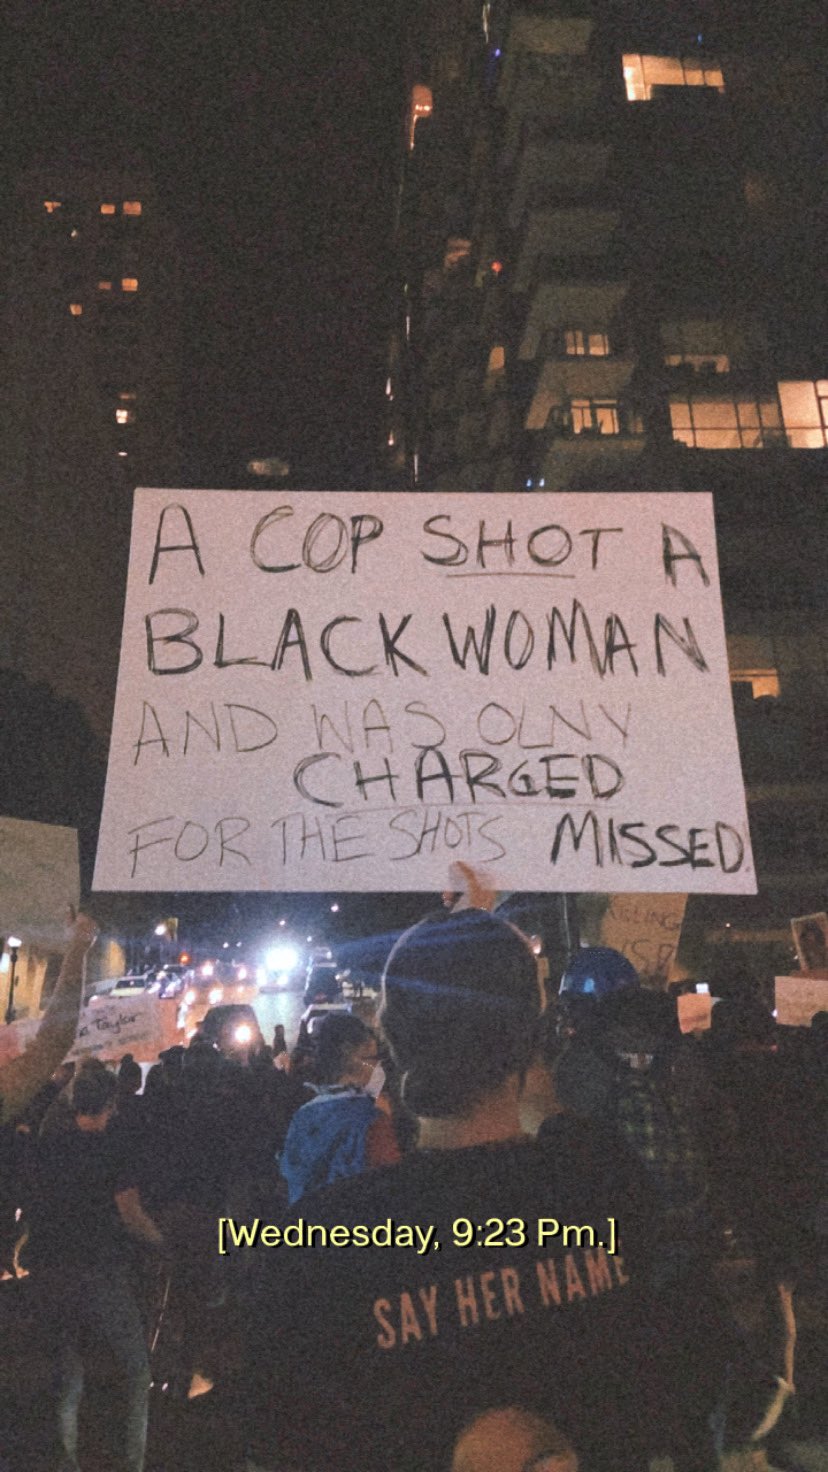 A COP SHOT A
BLACK WOMAN
AND WAS OLNY
CHARGED
FOR THE SHOTS MISSED.
KILLING
Taylor
[Wednesday, 9:23 Pm.]
SAY HER NAME